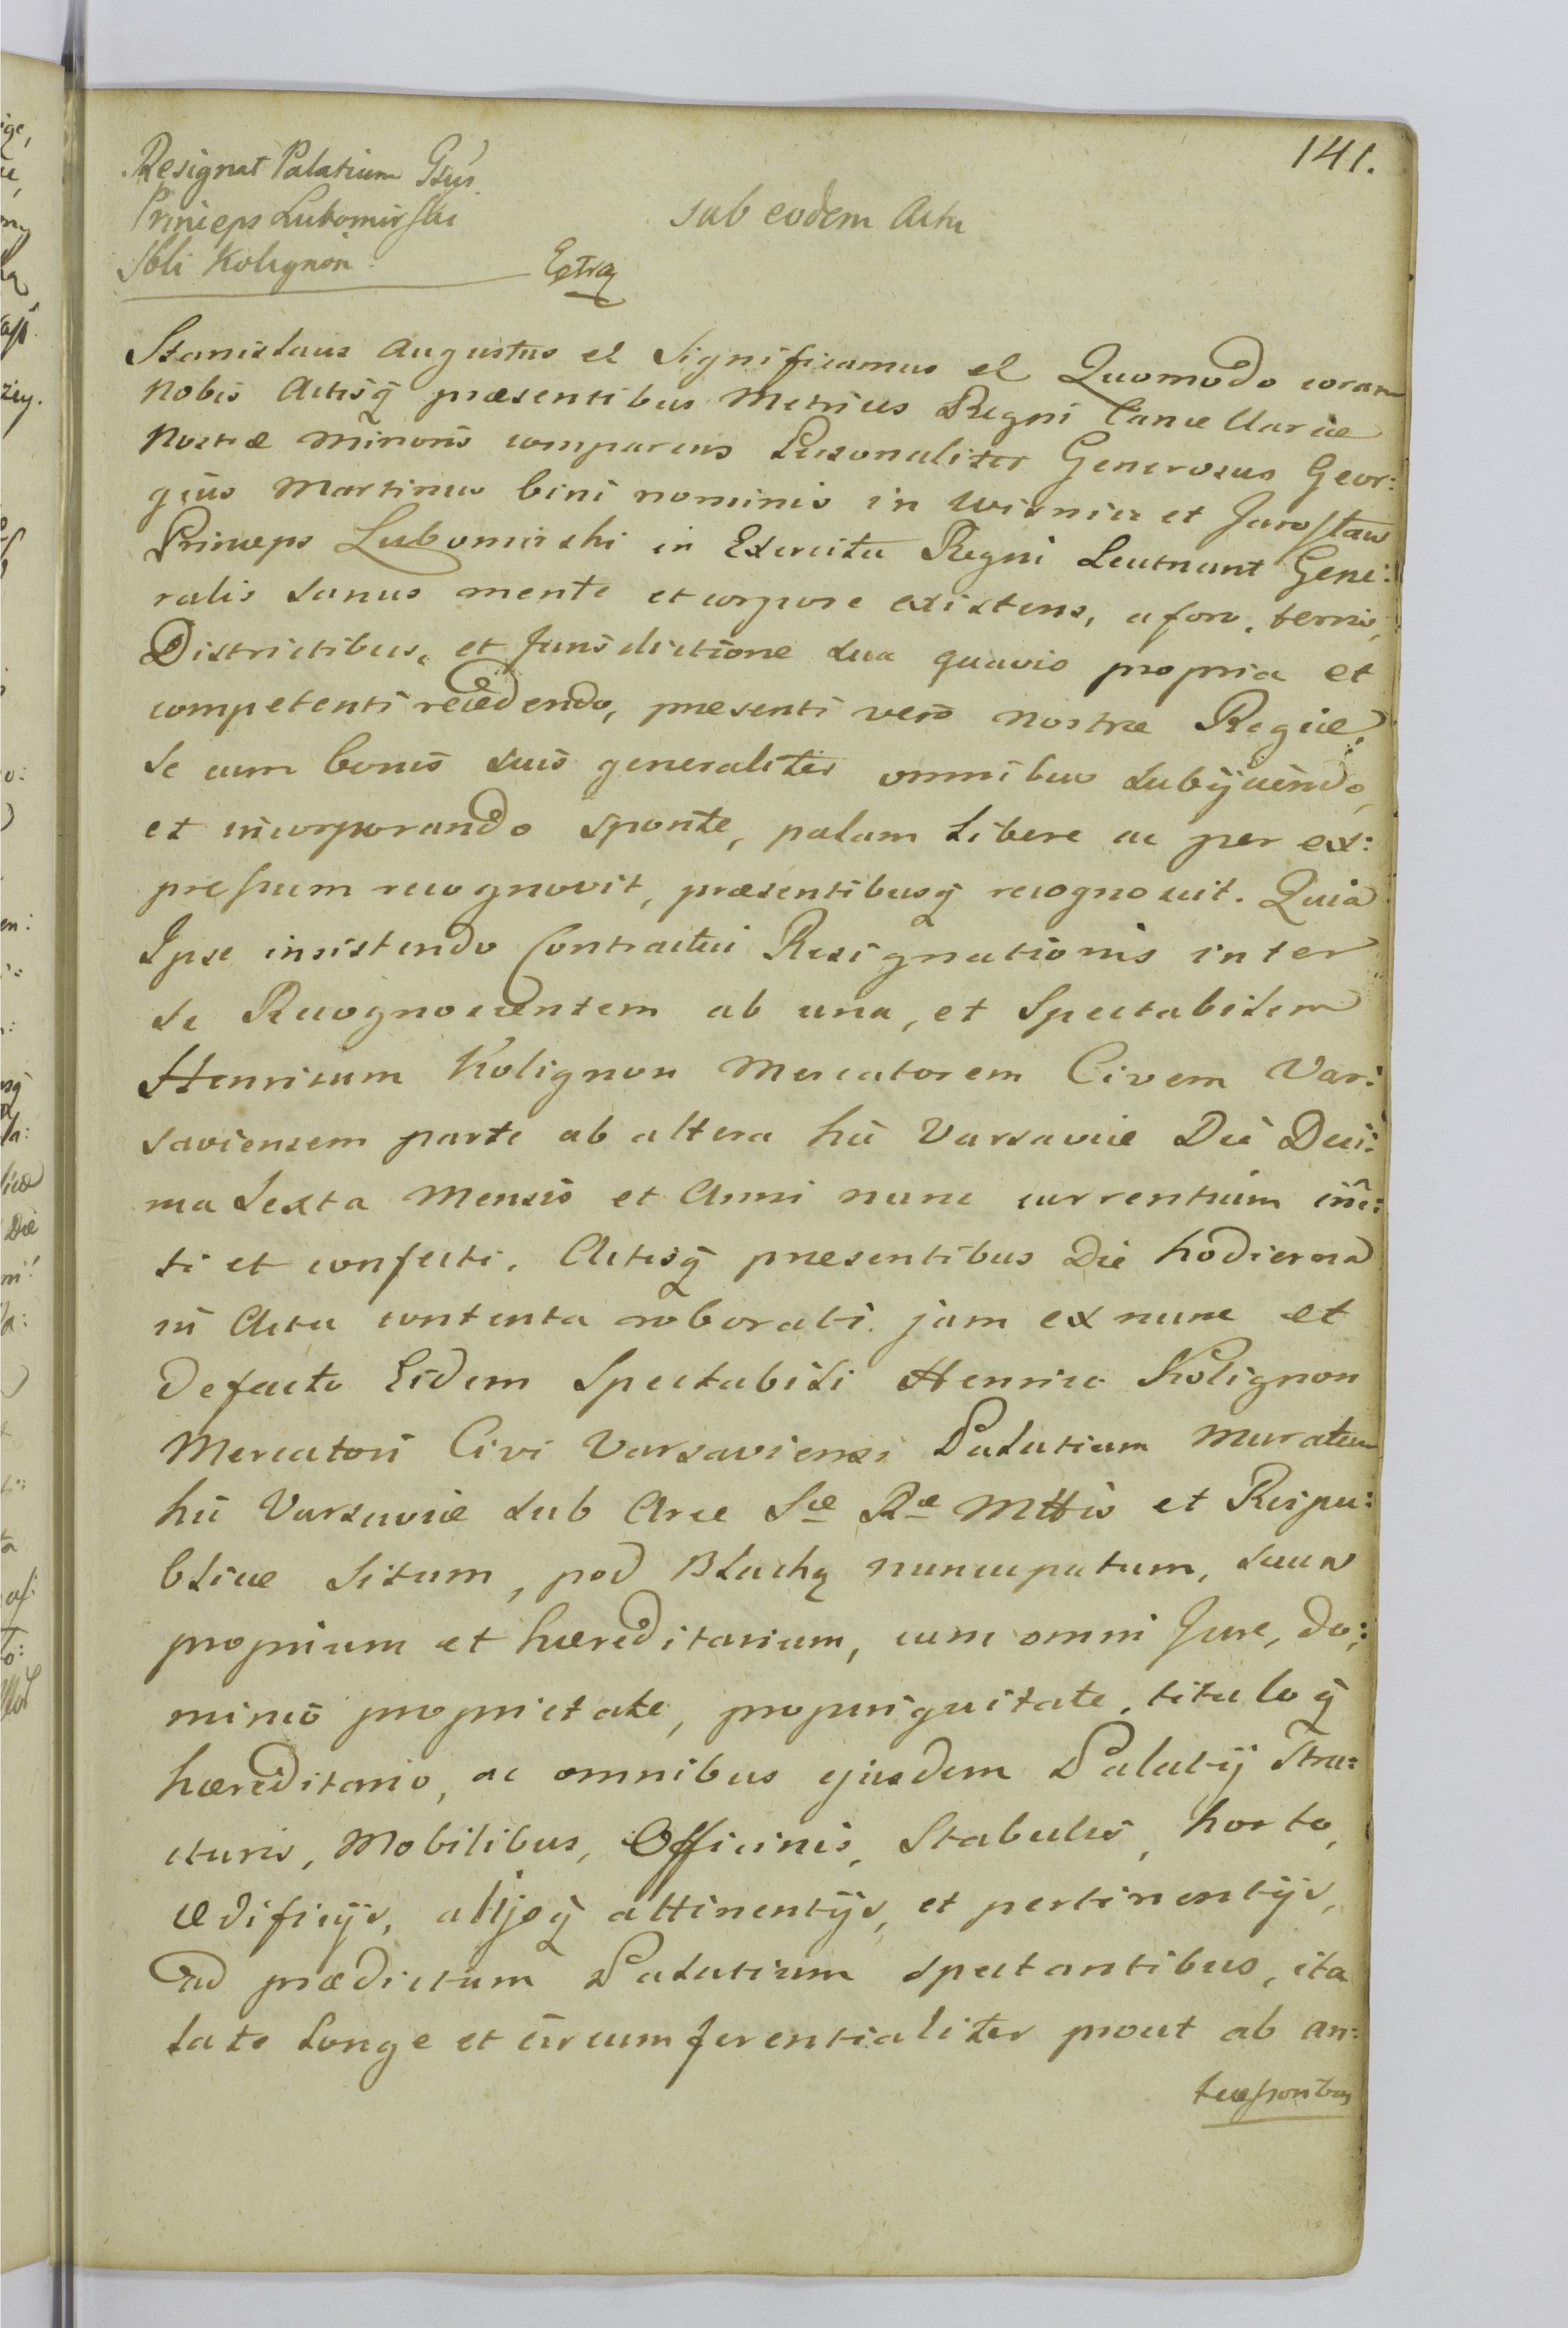 141.
Resignat Palatium Gsus
Princeps Lubomirski
Sbli Kolignon.
Extra
sub eodem Actu
Stanislaus Augustus et Significamus et Quomodo coram
Nobis Actisq præsentibus Metrices Regni Cancellariæ
Nostræ Minoris comparens Personaliter Generosus Geor:
gius Martinus bini nominis in Wisnicz et Jaroslaw
Princeps Lubomirski in Exercitu Regni Leutnant Gene:
ralis sanus mente et corpore existens, a foro, terris,
Districtibus, et Jurisdictione sua quavis propria et
competenti recedendo, præsenti vero Nostræ Regiæ,
se cum bonis suis generaliter omnibus subijciendo,
et incorporando sponte, palam libere ac per ex:
pressum recognovit, præsentibusq recognoscit. Quia
Ipse insistendo Contractui Resignationis inter
se Recognoscentem ab una, et Spectabilem
Henricum Kolignon Mercatorem Civem Var:
saviensem parte ab altera hic Varsaviæ Die Deci:
ma Sexta Mensis et Anni nunc currentium ini:
ti et confecti, Actisq præsentibus Die hodierna
in Acta contenta roborati. jam ex nunc et
de facto Eidem Spectabili Henrico Kolignon
Mercatori Civi Varsaviensi Palatium Muratum
hic Varsaviæ sub Arce Sæ Ræ Mttis et Reipu:
blicæ situm, pod Blachą nuncupatum, suum
proprium et hæreditarium, cum omni Jure, do:
minio proprietate, propinquitate, tituloq
hæreditario, ac omnibus ejusdem Palatij Stru:
cturis, Mobilibus, Officinis, Stabulis, horto,
ædificijs, alijsq attinentijs, et pertinentijs,
ad prædictum Palatium spectantibus, ita
late longe et circumferentialiter prout ab an: